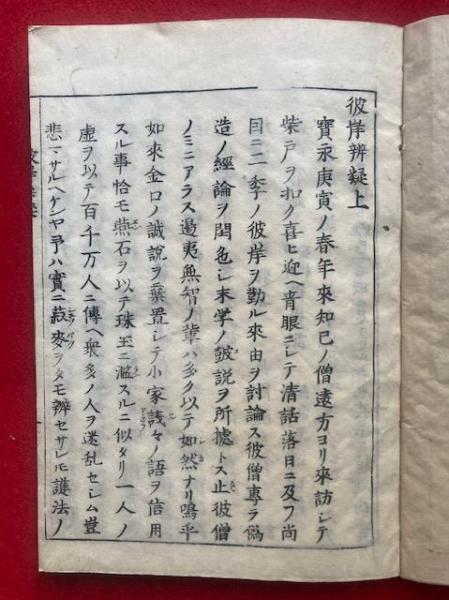 彼岸辨疑上
寶永庚寅ノ春年來知己ノ僧遠方ヨリ來訪シテ
柴戸ヲ扣ク喜ヒ迎ヘ青眼ニシテ清話落日ニ及フ尚
因ニ二季ノ彼岸ヲ勤ル來由ヲ討論ス彼僧專ラ偽
造ノ經論ヲ潤色シ末学ノ皷説ヲ所據トス止彼僧
ノミニアラス邊夷無智ノ輩ハ多ク以テ如然ナリ鳴乎
如來金口ノ誠説ヲ棄置シテ小家諓々ノ語ヲ信用
スル事恰モ燕石ヲ以テ珠玉ニ濫スルニ似タリ一人ノ
虚ヲ以テ百千万人ニ傳ヘ衆多ノ人ヲ迷乱セシム豈
悲マサルヘケンヤ予ハ實ニ菽麥ヲタモ辨セサレ𪜈護法ノ